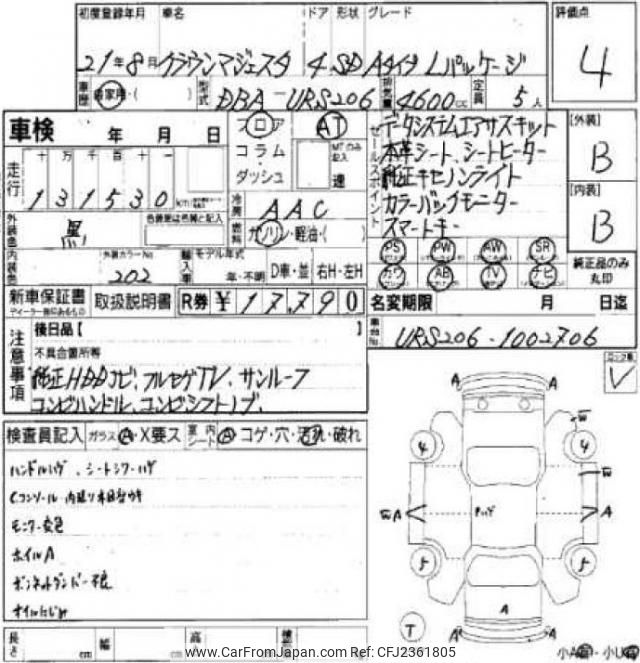 初度登録年月 車名 ドア 形状 グレード 評価点
21年8月 クラウンマジェスタ 4 SD Aタイプ Lパッケージ 4
車歴 自家用・( ) 型式 DBA-URS206 排気量 4600cc 定員 5人
車検 年 月 日 フロア AT セールスポイント データシステムエアサスキット 【外装】
コラム MTのみ記入 本革シート、シートヒーター B
走行 十 万 千 百 十 ダッシュ 速 純正キセノンライト 【内装】
131530km カラーバックモニター B
冷房 AAC スマートキー
外装色 黒 色替車は色替と記入 燃料 ガソリン・軽油・( ) PS PW AW SR 純正品のみ丸印
内装色 外装カラーNo 202 輸入車 モデル年式 年・不明 D車・並 右H・左H カワ AB TV ナビ
新車保証書 取扱説明書 R券 ¥17,790 名変期限 月 日迄
注意事項 後日品【 】 車台No URS206-1002706
不具合箇所等
純正HDDナビ、フルセグTV、サンルーフ
コンビハンドル、コンビシフトノブ、
検査員記入 ガラス A・X要ス 室内シート A コゲ・穴・汚れ・破れ
ハンドルハゲ、シートシワ・ハゲ
Cコンソール・内張り木目苔ウキ
モニター変色
ホイルA
ボンネットダンパー不良
オイルにじみ
長さ cm 幅 cm 高さ
A A
W
4 4
W
W A A
5 5
A
T
A A
www.CarFromJapan.com Ref: CFJ2361805